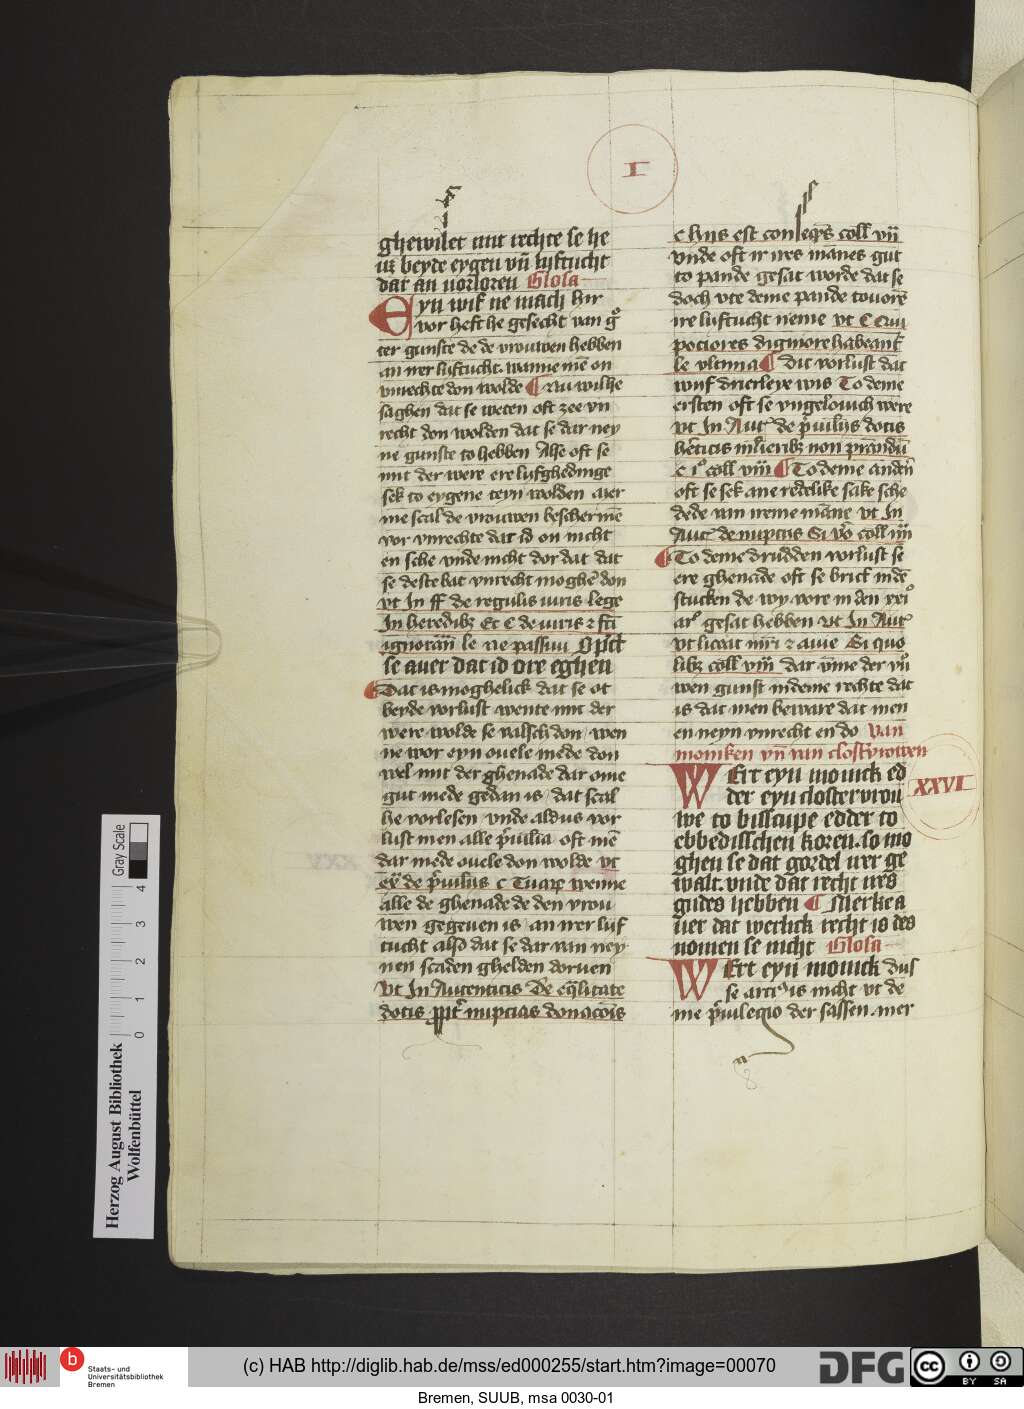 I
ghewilet mit rechte se he
uz beyde eygen vn̄ lyftucht
dar an uorloren Glosa
Eyn wif ne mach hir
vor heft he gesecht van gͦ
ter gunste de de vrouwen hebben
an irer lyftucht. wanne mē on
vnrechte don wolde ¶ Nu wil he
saghen dat se weten oft zee vn
recht don wolden dat se dar ney
ne gunste to hebben Alse oft se
mit der were ere lyfghedinge
sek to eygene teyn wolden aver
me scal de vrouwen beschermē
vor vnrechte dar id on nicht
en sche vnde nicht dor dat dat
se deste bat vnrecht moghē don
vt In ff de regulis iuris lege
In heredibz Et C de iuris ⁊ fti
ignorān le Ne passim
se auer dat id ore eghen
¶ Dat is moghelick dat se ot
beyde vorlust wente mit der
were wolde se valsch don wen
ne wor eyn ouele mede don
wel mit der ghenade dar ome
gut mede gedan is dat scal
he vorlesen vnde aldus vor
lust men alle p̄uilia oft mē
dar mede ouele don wolde vt
ex̄ de p̄uiliis c Tuarū wenne
alle de ghenade de den vrou
wen gegeuen is an irer lyf
tucht alsd dat se dar van ney
nen scaden ghelden doruen
Vt In Autenticis De eq̄litate
dotis ppt̄ nupcias donacōis
c hiis est conseqr̄s coll vii
vnde oft ir ires mānes gut
to pande gesat worde dat se
doch vte deme pande touorē
ire lyftucht neme vt C Qui
pociores digniore habeant̄
le vltima ¶ Dit vorlust dat
wijf drierleye wis To deme
ersten oft se vngelouich were
vt In Aut̄ de p̄uiliis dotis
hēticis mlieribz non prandū
c iͦ coll viii ¶ To deme andern̄
oft se sek ane redelike sake sche
dede van ireme māne vt In
Aut̄ de nuptiis Si vō coll iiii
¶ To deme drudden vorlust se
ere ghenade oft se brict in dē
stucken de wy vore in den xxiͦ
arͦ gesat hebben vt In Autͦ
vt liceat mr̄i ⁊ auie Si quo
libz coll viii dar vm̄e der vn̄
wen gunst in deme rechte dat
is dat men beware dat men
en neyn vnrecht en do Van
moniken vn̄ van clost̄vrowen
XXVI
WErt eyn monick ed
der eyn clostervrou
we to bisscupe edder to
ebbedisschen koren. so mo
ghen se dat gordel uer ge
walt. vnde dat recht nes
gudes hebben ¶ Merke a
uer dat werlick recht is des
nomen se nicht Glosa
WErt eyn monick Dus
se arcͥis is nicht vt de
me p̄uilegio der sassen. mer
Herzog August Bibliothek
Wolfenbüttel
Gray Scale
0 1 2 3 4
b Staats- und
Universitätsbibliothek
Bremen
(c) HAB http://diglib.hab.de/mss/ed000255/start.htm?image=00070
DFG
cc BY SA
Bremen, SUUB, msa 0030-01